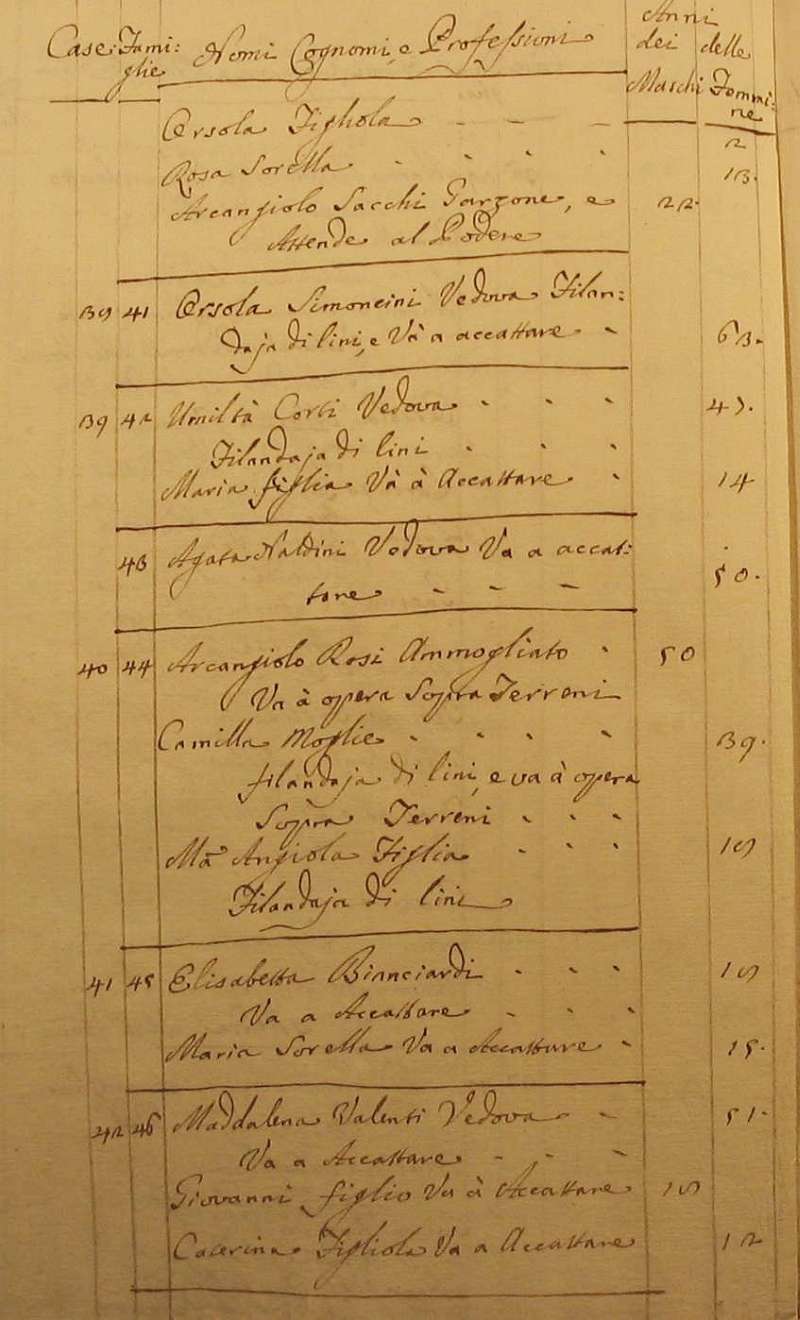 Case Fami: Nomi Cognomi, e Professioni Anni
glie dei delle
Maschi Femmi:
ne
Orsola Figliola - - - 2
Rosa Sorella - - - - 13.
Arcangiolo Sacchi Garzone, e 22.
Attende al Podere
39 41 Orsola Simoncini Vedova Filan:
daja di lini, e Và a accattare - 63.
39 42 Umiltà Corti Vedova - - - 47.
Filandaja di lini - - -
Maria figlia Và à Accattare - 14
43 Agata Naldini Vedova Va a accat:
tare - - - 50.
40 44 Arcangiolo Rosi Ammogliato - 50
Va à opera Sopra Terreni
Camilla Moglie - - - - 39.
filandaja di lini, e va à opera
Sopra Terreni - - -
Ma Angiola Figlia - - -
Filandaja di lini
41 45 Elisabetta Bianciardi - - -
Va a Accattare - - -
Maria Sorella Va a Accattare - 15.
42 46 Maddalena Valenti Vedova - - 51.
Va a Accattare - - -
Giovanni figlio Va à Accattare
Caterina Figliola Va a Accattare 12